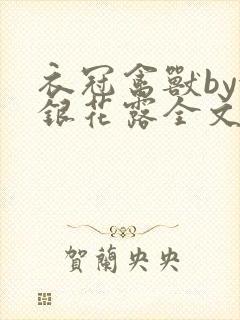 衣冠禽獸by
銀花露全文
賀蘭央央